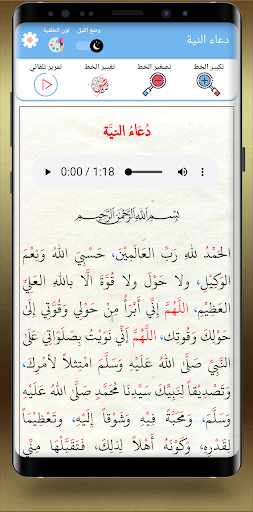 دعاء النية
وضع الليل
لون الخلفية
تكبير الخط
تصغير الخط
تغيير الخط
تمرير تلقائي
دُعَاءُ النيَّة
0:00 / 1:18
بِسْمِ اللهِ الرَّحْمَنِ الرَّحِيمِ
الحَمْدُ للهِ رَبِّ العَالَمِينَ، حَسْبِيَ اللهُ وَنِعْمَ
الوَكِيلُ، ولا حَوْلَ ولا قُوَّةَ الَّا بِاللهِ العَلِيِّ
العَظِيْمِ، اللَّهُمَّ إِنِّي أَبْرَأُ مِنْ حَوْلِي وَقُوَّتِي إلَى
حَوْلِكَ وَقُوتِك، اللَّهُمَّ إِنِّي نَوَيْتُ بِصَلَوَاتِي عَلَى
النَّبِيِّ صَلَّى اللهُ عَلَيْهِ وَسَلَّمَ امْتِثَلاً لأَمْرِكَ،
وَتَصْدِيْقاً لِنَبِيكَ سَيِّدِنَا مُحَمَّدٍ صَلَّى اللهُ عَلَيْهِ
وَسَلَّمَ، وَمَحَبَّةً فِيْهِ وَشَوْقاً إِلَيْهِ، وَتَعْظِيْماً
لِقَدْرِهِ، وَكَوْنُهُ أَهْلاً لِذلِكَ، فَتَقَبَّلْهَا مِنِّي